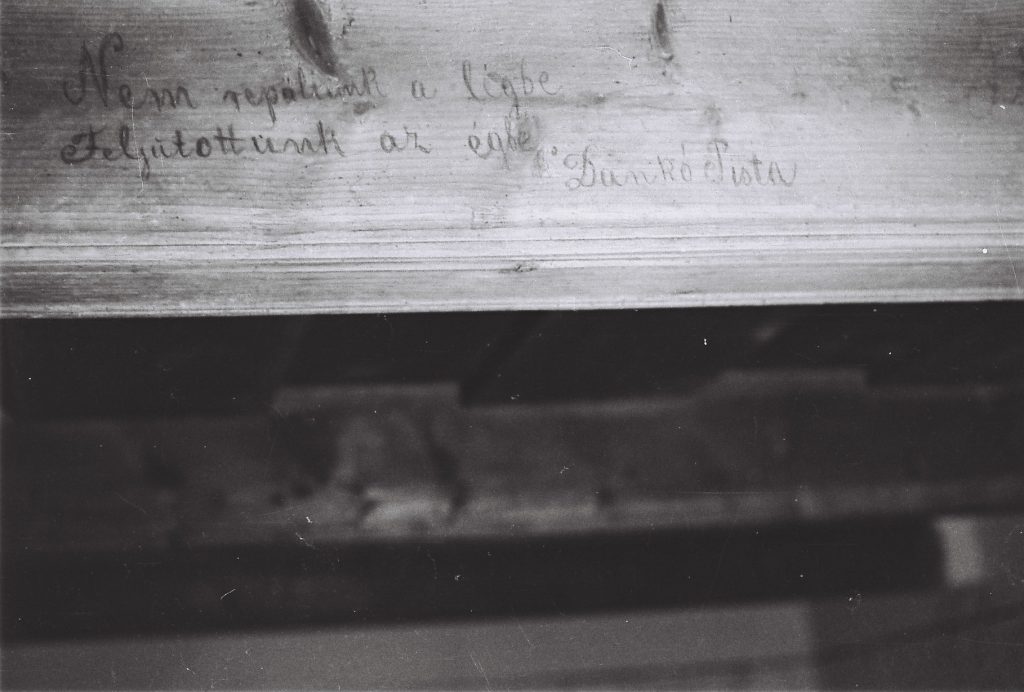 Nem repölünk a légbe
Feljutottunk az égbe
Dankó Pista